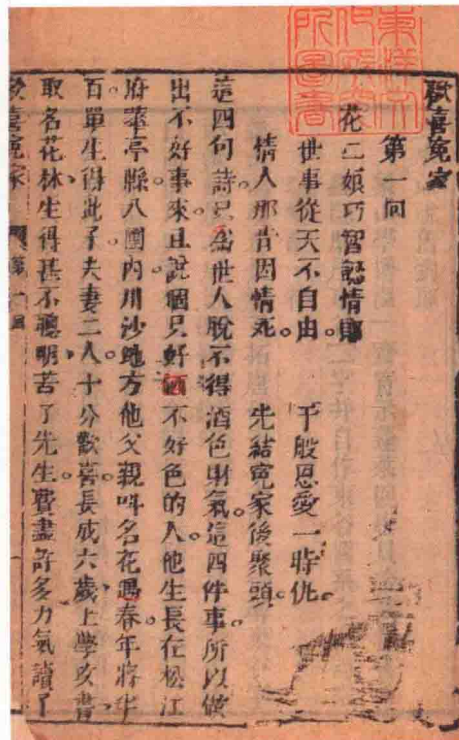 歡喜冤家
第一回
花二娘巧智認情郎
世事從天不自由 千般恩愛一時仇
情人那肯因情死 先結冤家後聚頭
這四句詩只爲世人脫不得酒色財氣這四件事所以做
出不好事來且說個只好酒不好色的人他生長在松江
府華亭縣八團內川沙地方他父親叫名花遇春年將半
百單生得此子夫妻二人十分歡喜長成六歲上學攻書
取名花林生得甚不聰明苦了先生費盡許多力氣讀了
歡喜冤家 第一回
東洋文化研究所圖書